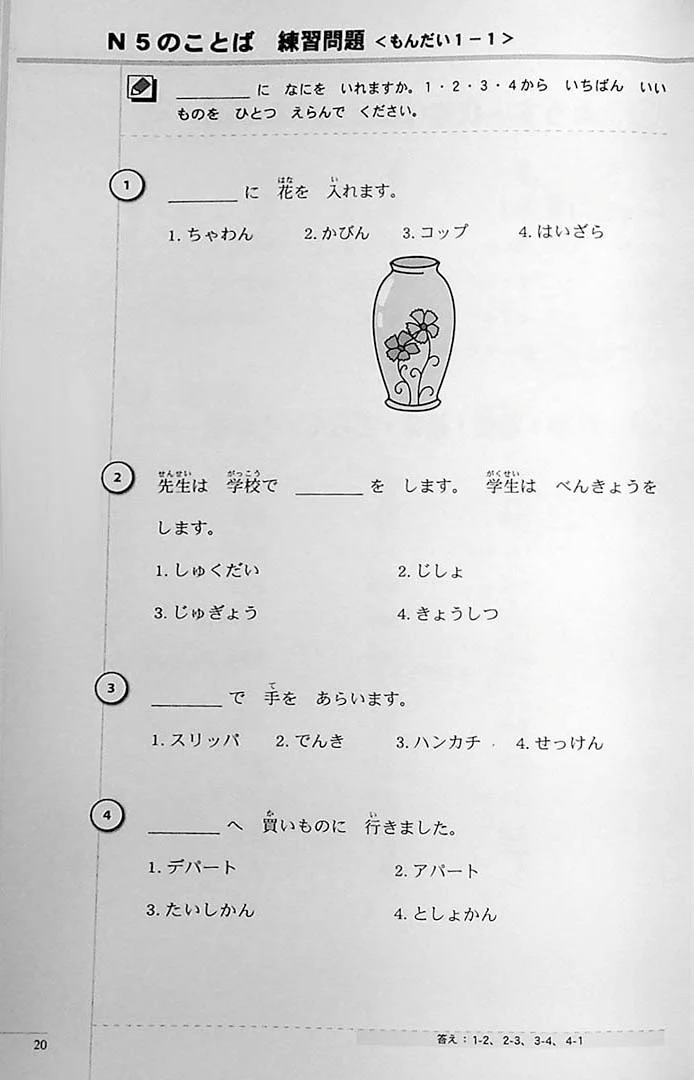 N5のことば 練習問題<もんだい1-1>
______に なにを いれますか。1・2・3・4から いちばん いい
ものを ひとつ えらんで ください。
1 ______に 花(はな)を 入(い)れます。
1.ちゃわん 2.かびん 3.コップ 4.はいざら
2 先生(せんせい)は 学校(がっこう)で ______を します。 学生(がくせい)は べんきょうを
します。
1.しゅくだい 2.じしょ
3.じゅぎょう 4.きょうしつ
3 ______で 手(て)を あらいます。
1.スリッパ 2.でんき 3.ハンカチ 4.せっけん
4 ______へ 買(か)いものに 行(い)きました。
1.デパート 2.アパート
3.たいしかん 4.としょかん
20
答え:1-2、2-3、3-4、4-1